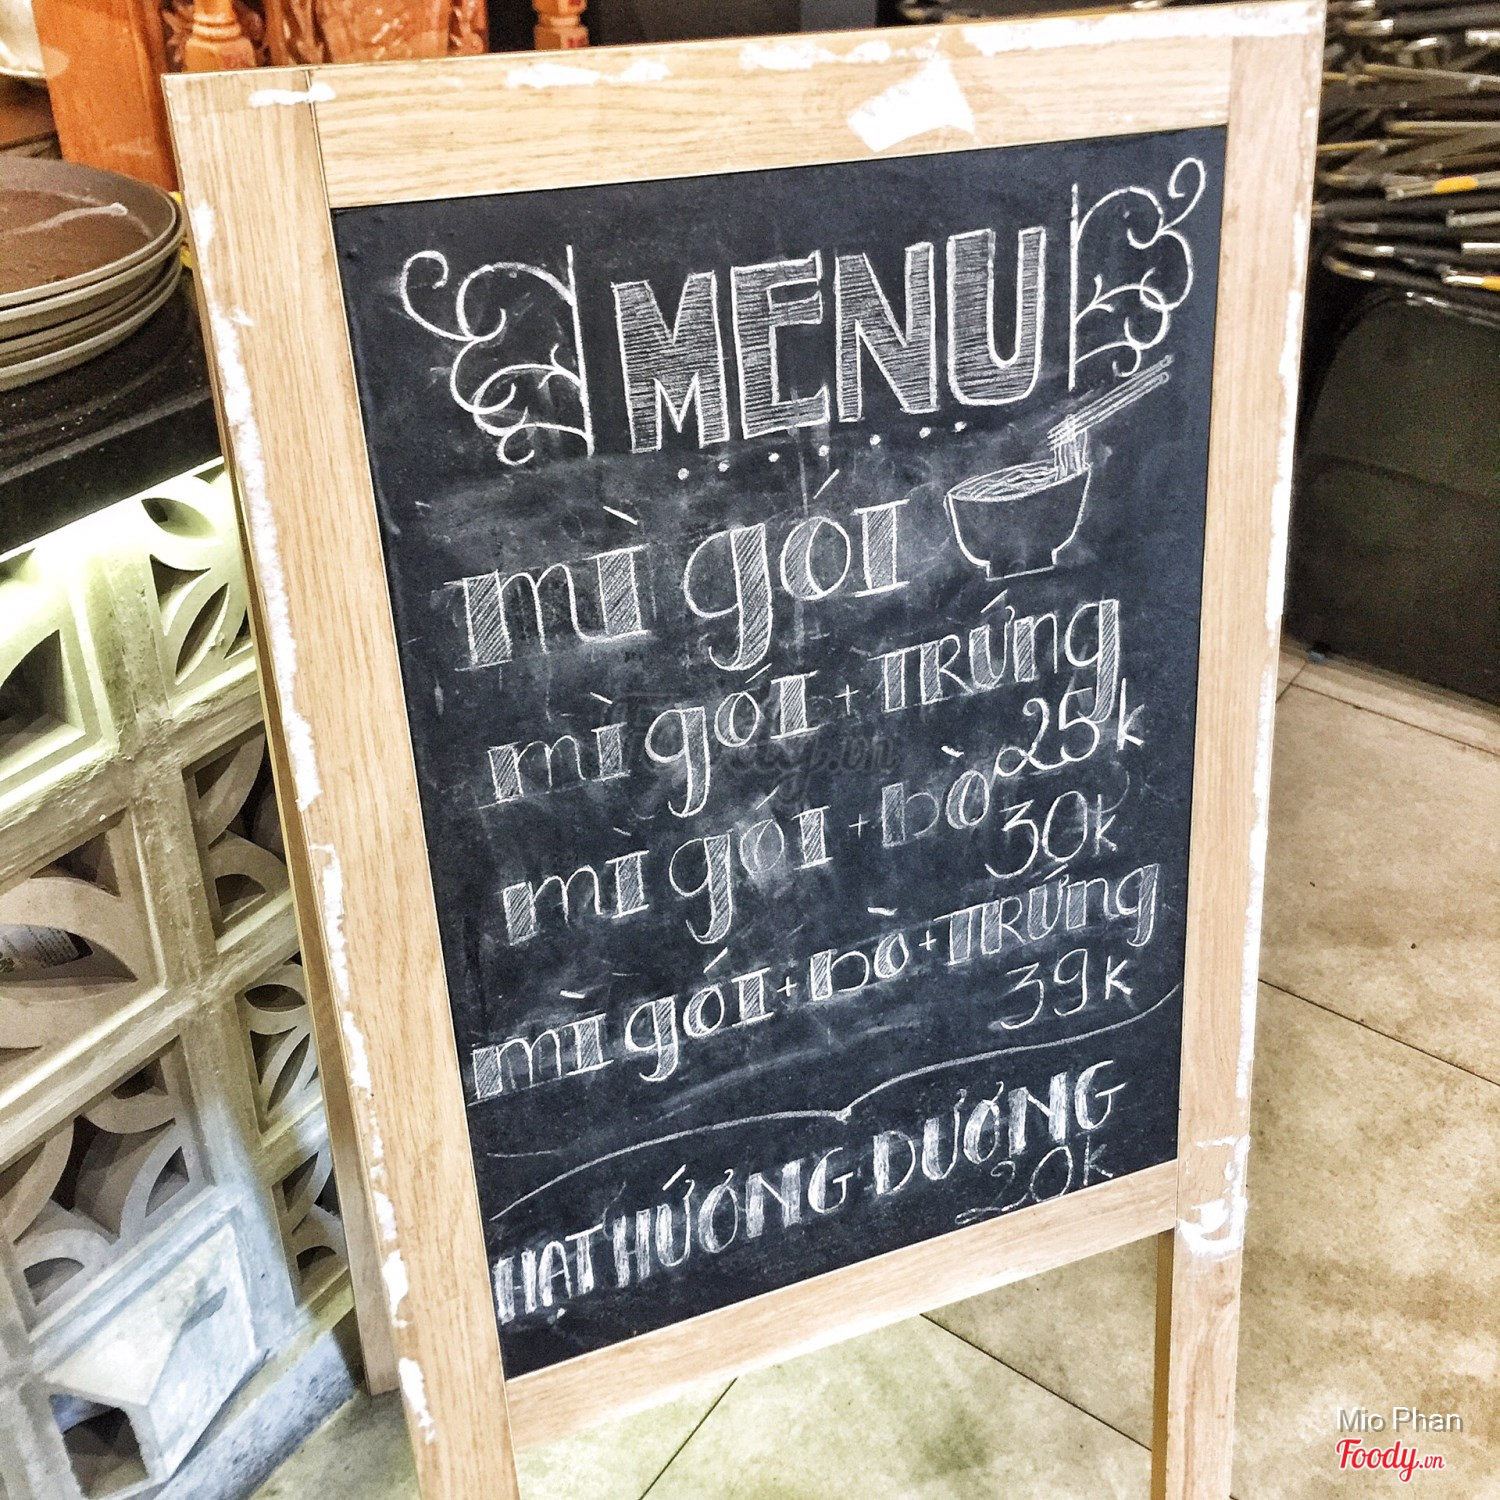 MENU
mì gói
mì gói + TRỨng
25k
mì gói + bò
30k
mì gói + bò + TRỨng
39k
HẠT HƯỚNG DƯƠNG
20k
Foody.vn
Mio Phan
Foody.vn